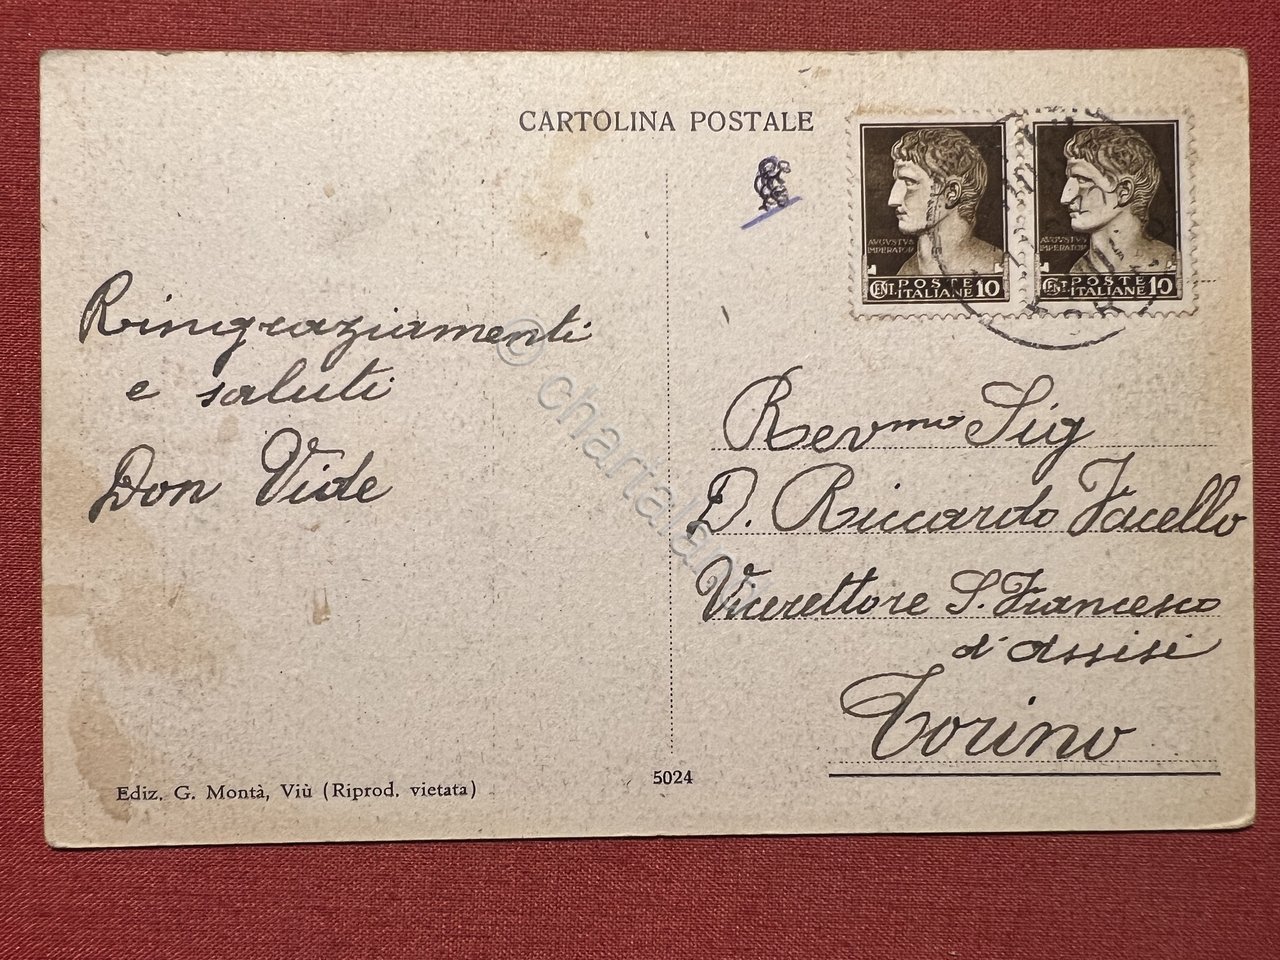 CARTOLINA POSTALE
AVGVSTVS
IMPERATOR
CENT. POSTE
ITALIANE 10
AVGVSTVS
IMPERATOR
CENT. POSTE
ITALIANE 10
Ringraziamenti
e saluti
Don Vide
Revmo Sig
D. Riccardo Vacello
Vicerettore S. Francesco
d'Assisi
Torino
Ediz. G. Montà, Viù (Riprod. vietata)
5024